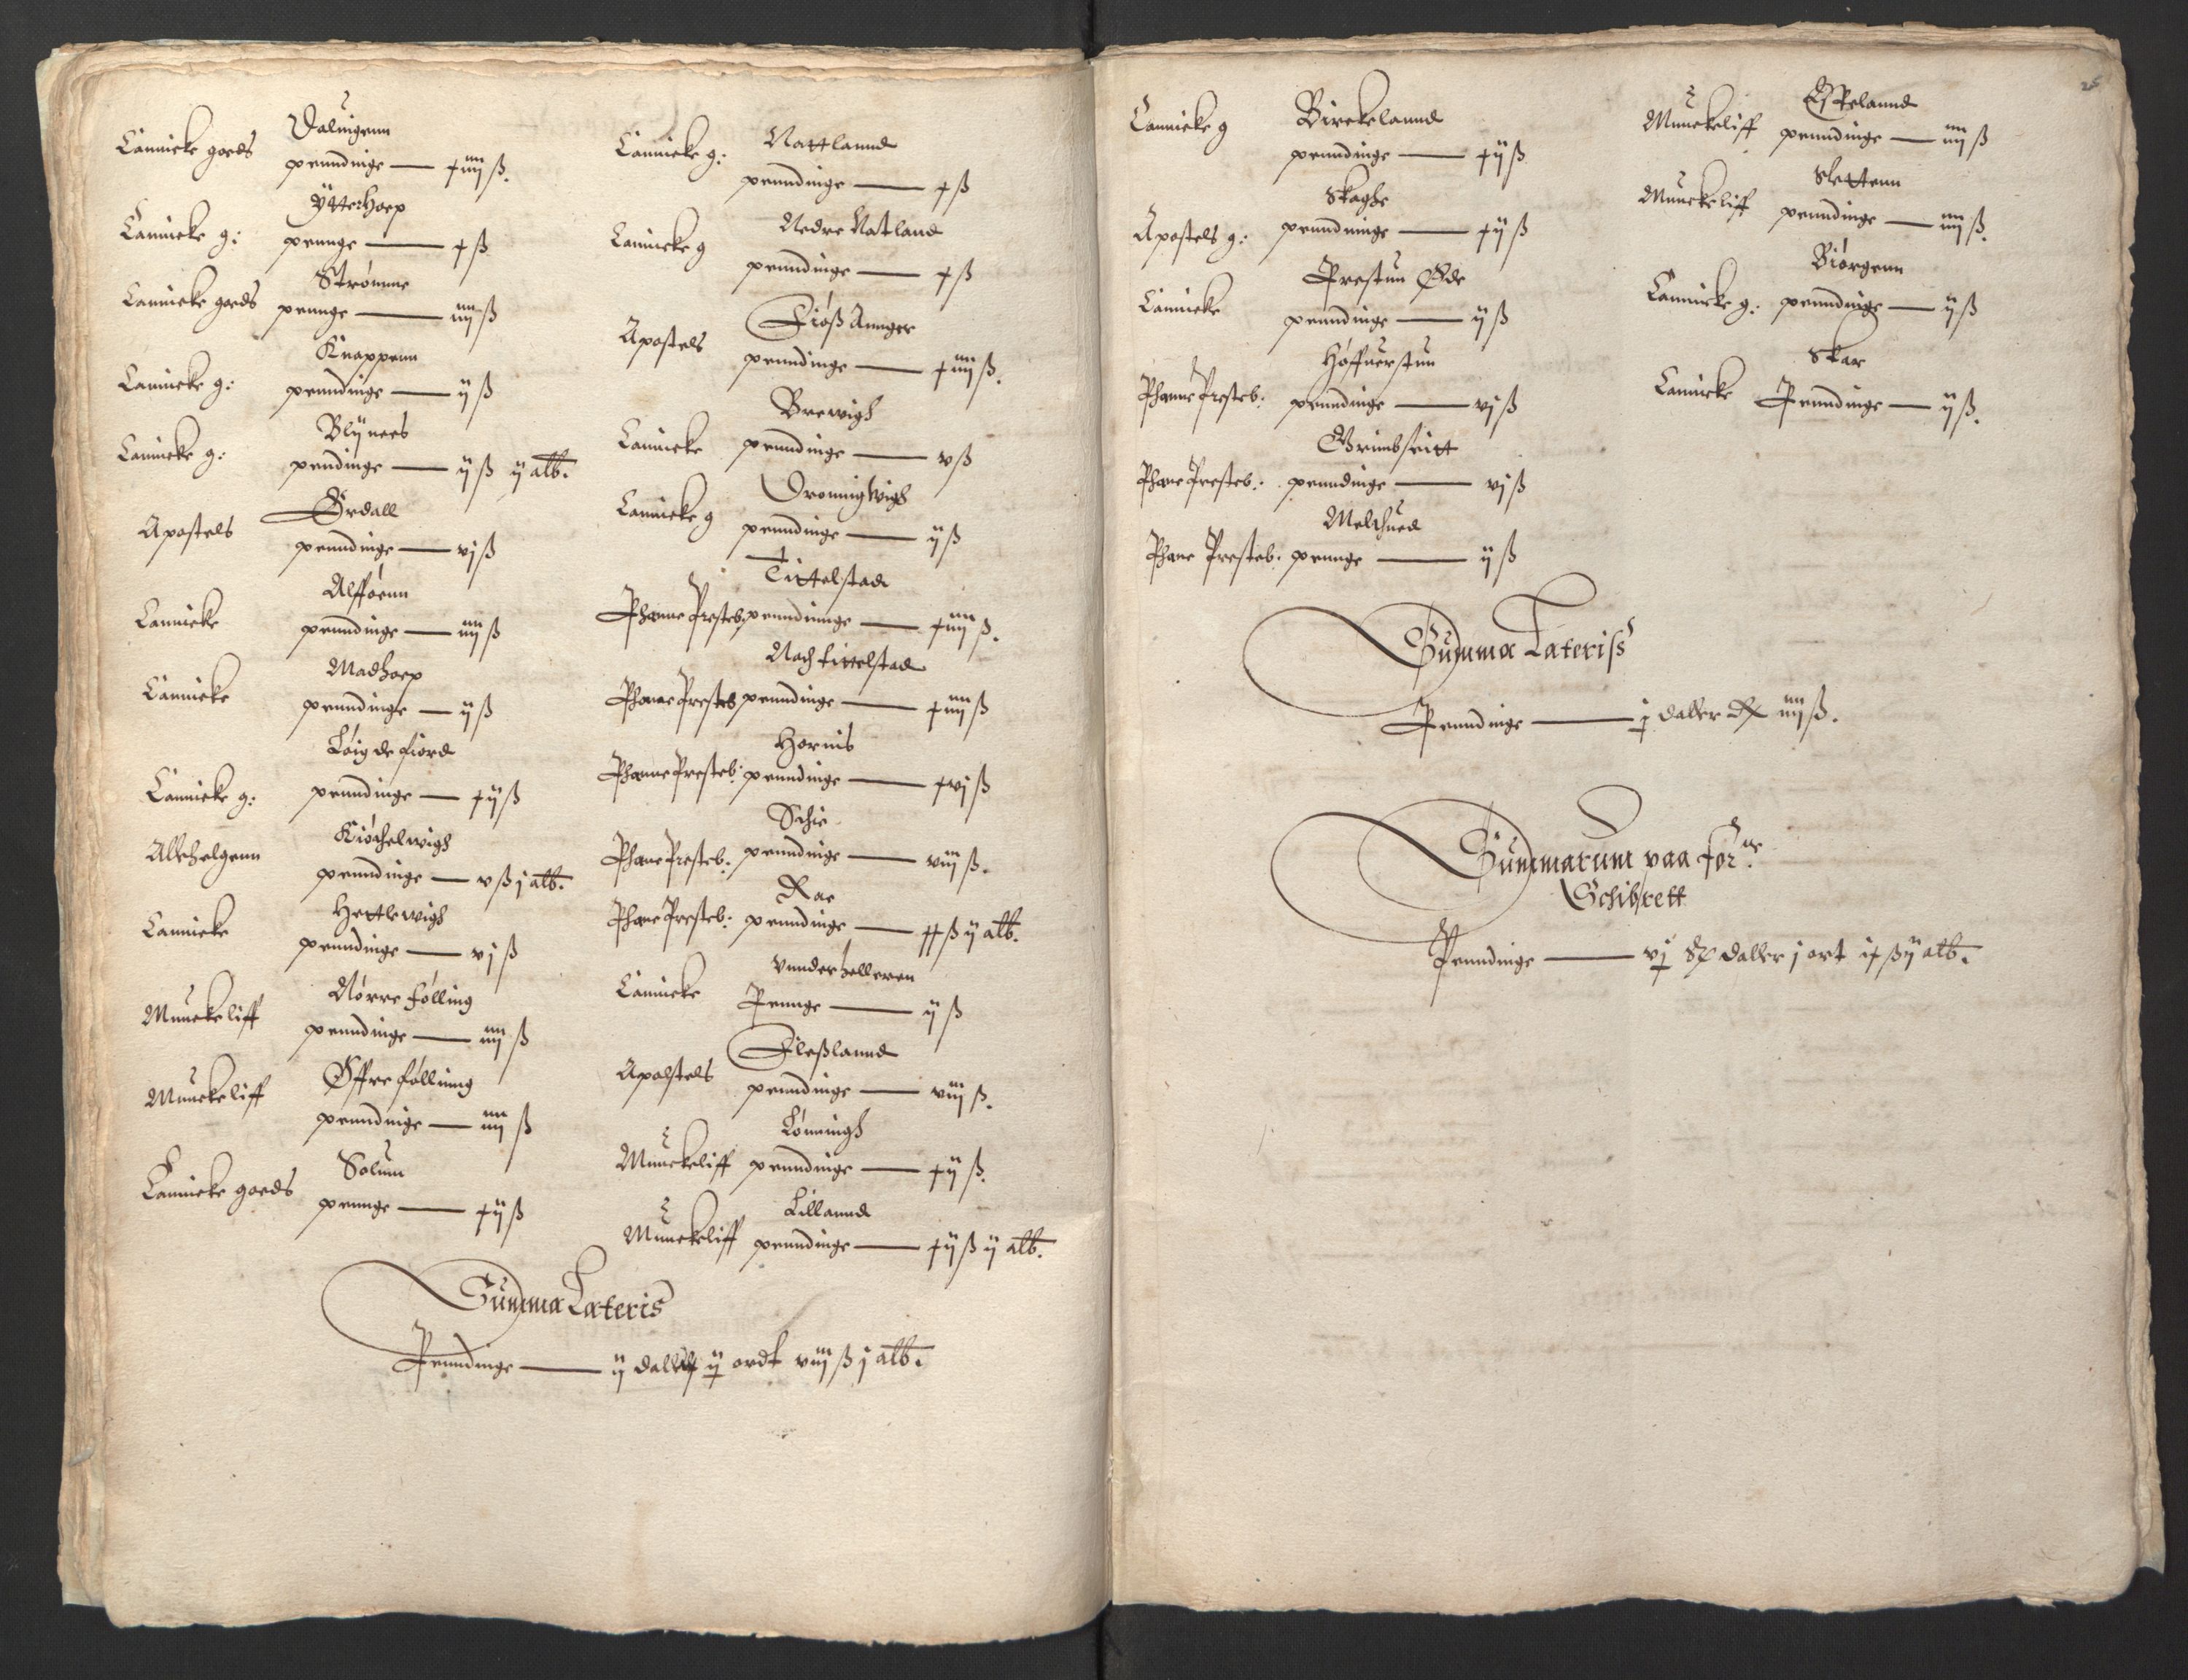 Cannicke goeds
Daluigenn
penndinge — xiiij ß.
Cannicke g:
Ytterhoep
pennge — x ß
Cannicke goeds
Strømme
pennge — iiij ß
Cannicke g:
Knappenn
penndinge — ij ß
Cannicke g:
Blijnees
pendinge — ij ß ij alb.
Apostels
Ørdall
penndinge — vj ß
Cannicke
Alfføenn
penndinge — iiij ß
Cannicke
Madhoep
penndinge — ij ß
Cannicke g:
Løig de fiord
penndinge — xij ß
Allehelgenn
Kiøchelwigh
penndinge — v ß j alb.
Cannicke
Hettlewigh
penndinge — vj ß
Munckeliff
Nørre følling
penndinge — iiij ß
Munckeliff
Øffre føllinng
penndinge — iiij ß
Cannicke goeds
Solum
pennge — xij ß
Cannicke g:
Nattlannd
penndinge — x ß
Cannicke g
Nedre Natland
penndinge — x ß
Apostels
Fiøß Annger
penndinge — xiiij ß.
Cannicke
Brewigh
penndinge — v ß
Cannicke g
Dronnig Wigh
penndinge — ij ß
Phanne Presteb:
Tittelstad
penndinnge — xiiij ß.
Phanne Presteb
Noch tittelstad
penndinge — xiiij ß
Phanne Presteb:
Hornis
penndinge — xvj ß
Phane Presteb:
Schie
penndinge — viij ß.
Phane Presteb:
Rae
penndinge — xx ß ij alb.
Cannicke
Vnnderhelleren
Pennge — ij ß
Apolstels
Fleßlannd
penndinge — viij ß.
Munckeliff
Lønningh
penndinge — xij ß.
Munckeliff
Lillannd
penndinge — xij ß ij alb.
Summa Lateris
Penndinge — ij daller ij ordt viij ß j alb.
25
Cannicke g
Birckelannd
penndinge — xij ß
Apostels g:
Skaghe
penndinnge — xij ß
Cannicke
Prestun Øde
penndinge — ij ß
Phanne Presteb:
Høffuerstun
penndinge — vj ß
Phane Presteb:
Grimbseitt
penndinge — vj ß
Phane Presteb:
Melchued
pennge — ij ß
Munckeliff
Espelannd
penndinge — iiij ß
Munckeliff
Slettenn
penndinge — iiij ß.
Cannicke g:
Biørgenn
penndinge — ij ß
Cannicke
Skar
Penndinge — ij ß.
Summa Lateriss
Penndinge — j daller iiij ß.
Summarum paa for:ne
Schibrett
Penndinge — vj daller j ort ix ß ij alb.